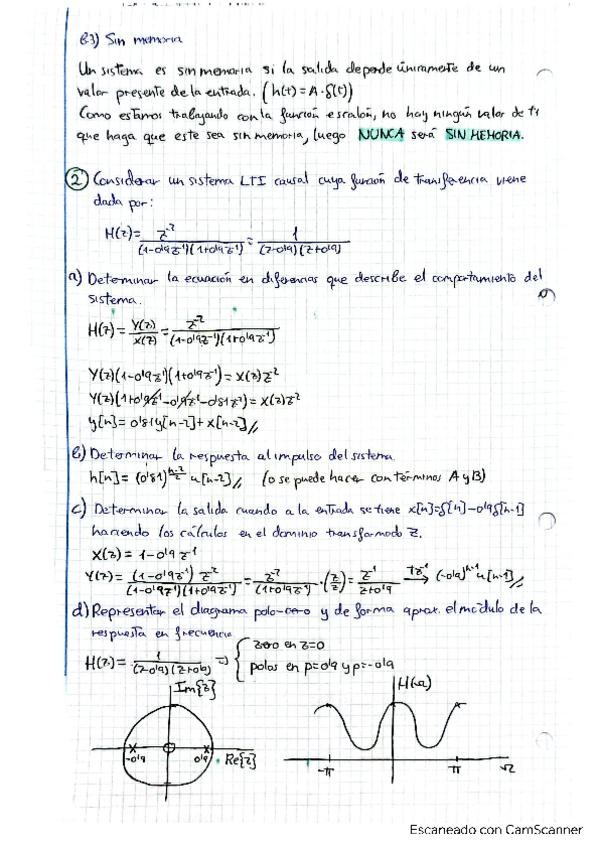 B.3) Sin memoria
Un sistema es sin memoria si la salida depende únicamente de un
valor presente de la entrada. (h(t)=A·δ(t))
Como estamos trabajando con la función escalón, no hay ningún valor de t
que haga que este sea sin memoria, luego NUNCA será SIN MEMORIA.
② Considerar un sistema LTI causal cuya función de transferencia viene
dada por:
H(z)= z⁻² / (1-0'9z⁻¹)(1+0'9z⁻¹) = 1 / (z-0'9)(z+0'9)
a) Determinar la ecuación en diferencias que describe el comportamiento del
sistema.
H(z)= Y(z)/X(z) = z⁻² / (1-0'9z⁻¹)(1+0'9z⁻¹)
Y(z)(1-0'9z⁻¹)(1+0'9z⁻¹)=X(z)z⁻²
Y(z)(1+0'9z⁻¹-0'9z⁻¹-0'81z⁻²)=X(z)z⁻²
y[n]=0'81y[n-2]+x[n-2]//
b) Determinar la respuesta al impulso del sistema.
h[n]=(0'81)^(n-2)/2 u[n-2]// (o se puede hacer con términos A y B)
c) Determinar la salida cuando a la entrada se tiene x[n]=δ[n]-0'9δ[n-1]
haciendo los cálculos en el dominio transformado Z.
X(z)=1-0'9z⁻¹
Y(z)= (1-0'9z⁻¹)z⁻² / (1-0'9z⁻¹)(1+0'9z⁻¹) = z⁻² / (1+0'9z⁻¹) ·(z/z)= z⁻¹ / z+0'9 TZ⁻¹→ (-0'9)ⁿ⁻¹u[n-1]//
d) Representar el diagrama polo-cero y de forma aprox. el módulo de la
respuesta en frecuencia
H(z)= 1 / (z-0'9)(z+0'9) ⇒ { zero en z=0
polos en p=0'9 y p=-0'9
Im{z}
H(Ω)
-0'9
0'9
Re{z}
-π
π
Ω
Escaneado con CamScanner